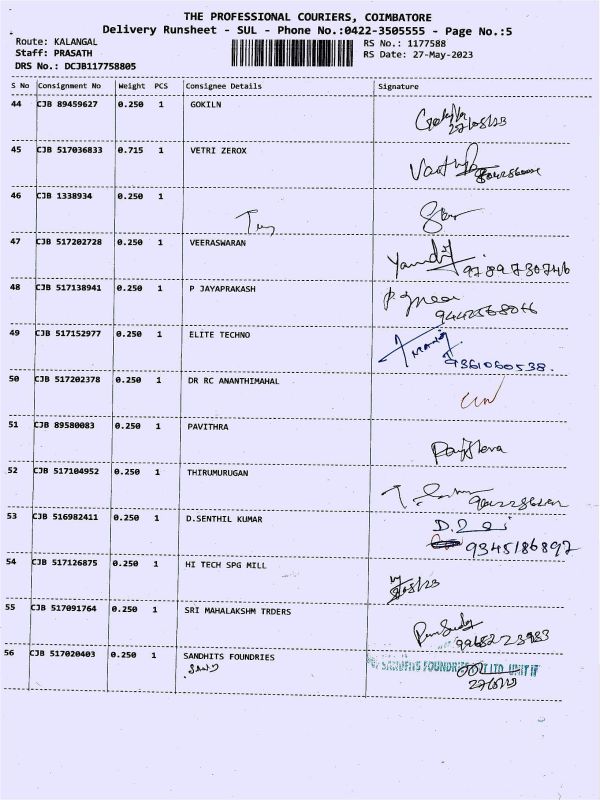 THE PROFESSIONAL COURIERS, COIMBATORE
Delivery Runsheet - SUL - Phone No.:0422-3505555 - Page No.:5
Route: KALANGAL RS No.: 1177588
Staff: PRASATH RS Date: 27-May-2023
DRS No.: DCJB117758805
S No Consignment No Weight PCS Consignee Details Signature
44 CJB 89459627 0.250 1 GOKILN
27/05/23
45 CJB 517036833 0.715 1 VETRI ZEROX
46 CJB 1338934 0.250 1
47 CJB 517202728 0.250 1 VEERASWARAN
9789730746
48 CJB 517138941 0.250 1 P JAYAPRAKASH
49 CJB 517152977 0.250 1 ELITE TECHNO
9361060538.
50 CJB 517202378 0.250 1 DR RC ANANTHIMAHAL
51 CJB 89580083 0.250 1 PAVITHRA
52 CJB 517104952 0.250 1 THIRUMURUGAN
53 CJB 516982411 0.250 1 D.SENTHIL KUMAR
9345186897
54 CJB 517126875 0.250 1 HI TECH SPG MILL
55 CJB 517091764 0.250 1 SRI MAHALAKSHM TRDERS
56 CJB 517020403 0.250 1 SANDHITS FOUNDRIES
SANDHITS FOUNDRIES LTD, UNIT IF